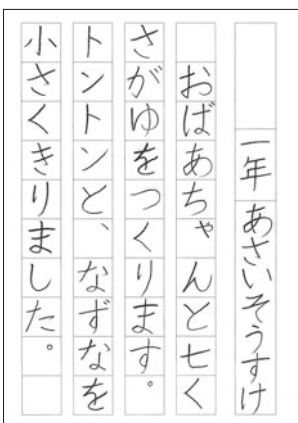 一年 あさいそうすけ
おばあちゃんと七く
さがゆをつくります。
トントンと、なずなを
小さくきりました。